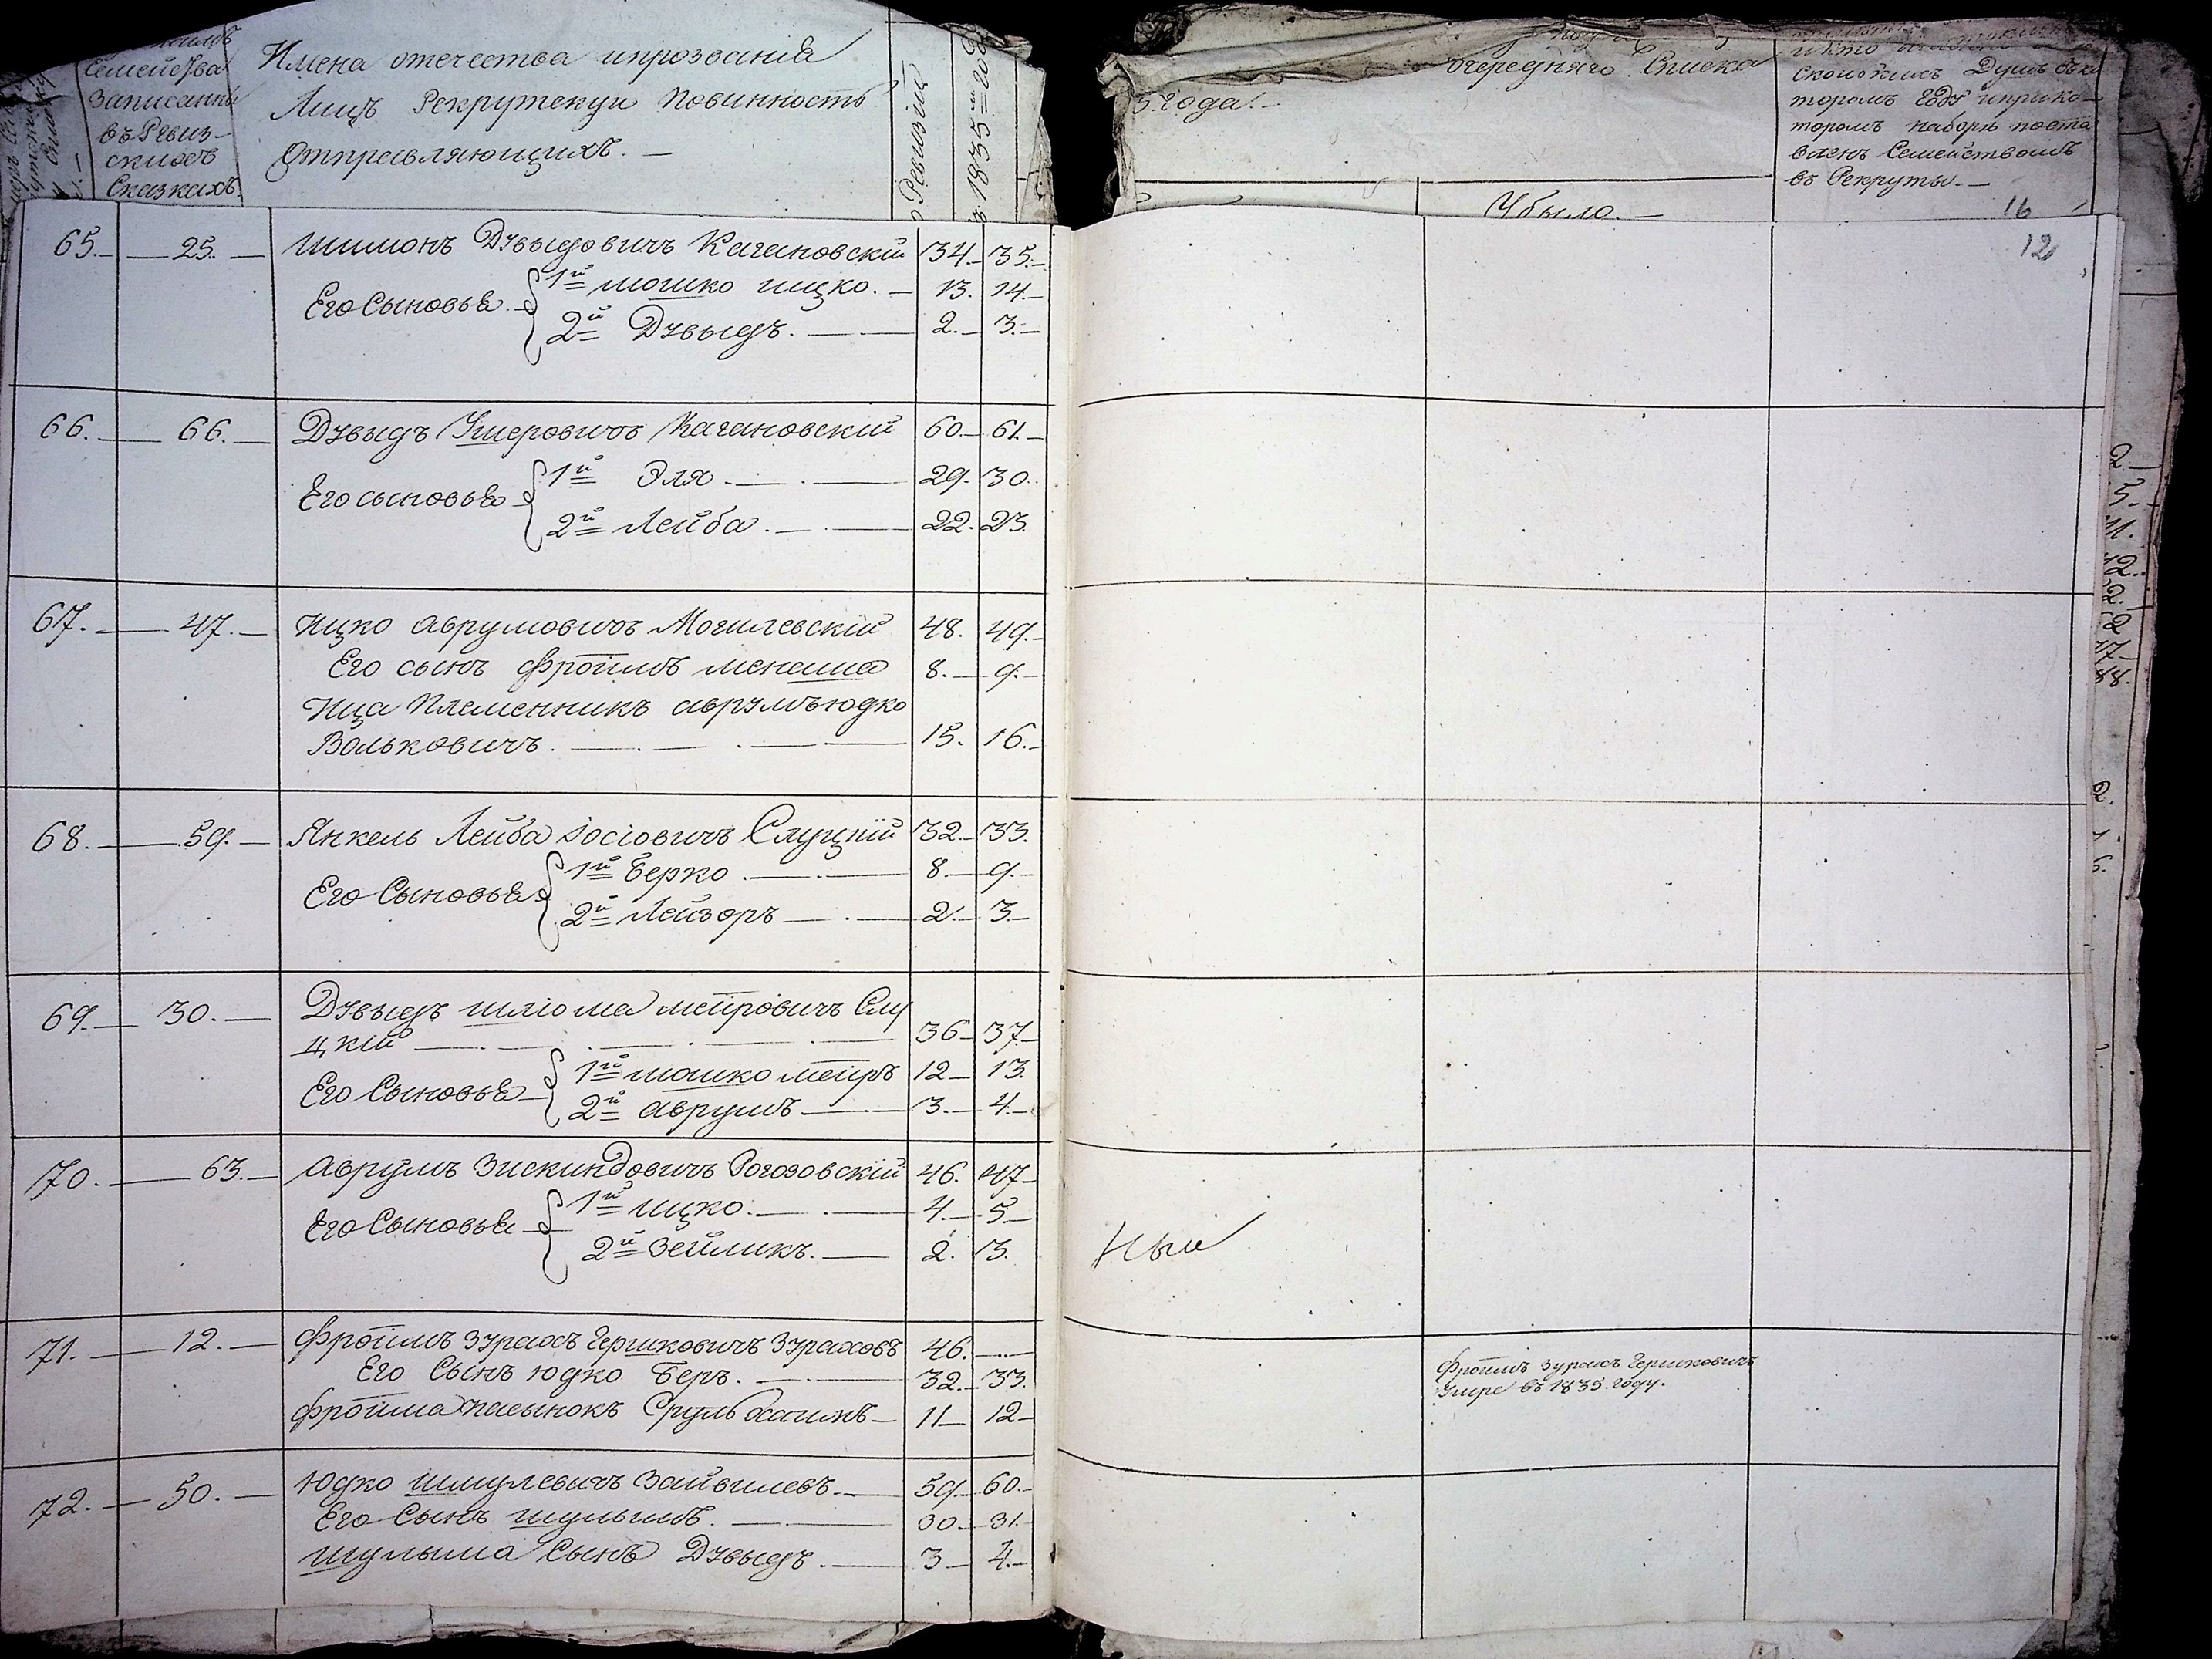 Семейства
Записанны
въ Ревиз-
скихъ
Сказкахъ.
Имена отечества ипрозванія
Лицъ Рекрутскую Повинность
Отправляющихъ. —
Ревизіи
1835 = году
очереднаго Списка
5. Года. —
Сколькихъ Душъ въ ко
торомъ Году иприко-
торомъ наборѣ поста
вленъ Семействомъ
въ Рекруты. —
Убыло. —
16
12
65. — 25. — Шимонъ Дувыдовичъ Кагановскій 34. 35.
Его Сыновья 1й Мошко Ицко. — 13. 14.
2й Дувыдъ. — 2. 3.
66. — 66. — Дувыдъ Ушеровичъ Кагановскій 60. 61.
Его сыновья 1й Эля. — 29. 30.
2й Лейба. — 22. 23.
67. — 47. — Ицко Аврумовичъ Могилевскій 48. 49.
Его сынъ Фроимъ Менаша 8. 9.
Ица Племенникъ Аврумъ Юдко
Вольковичъ. — 15. 16.
68. — 59. — Янкель Лейба Іосіовичъ Слуцкій 32. 33.
Его Сыновья 1й Берко. — 8. 9.
2й Лейзоръ — 2. 3.
69. — 30. — Дувыдъ Шліома Меировичъ Слу
цкій — 36. 37.
Его Сыновья 1й Мошко Меиръ 12. 13.
2й Аврумъ — 3. 4.
70. — 63. — Аврумъ Зискиндовичъ Рогозовскій 46. 47
Его Сыновья 1й Ицко. — 4. 5
2й Зейликъ. — 2. 3.
71. — 12. — Фроимъ Зурахъ Гершковичъ Зураховъ 46. —
Его Сынъ Юдко Беръ. — 32. 33.
Фроима Пасынокъ Сруль Хаимъ — 11 12
Фроимъ Зурахъ Гершковичъ
Умре въ 1835. году.
72. — 50. — Юдко Шмулевичъ Зайвилевъ. — 59. 60.
Его Сынъ Шулимъ. — 30. 31.
Шулыма Сынъ Дувыдъ. — 3 4.